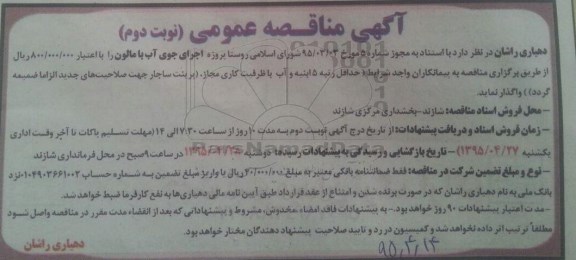 آگهی مناقصه عمومی (نوبت دوم)
دهیاری راشان در نظر دارد با استناد به مجوز شماره ۵ مورخ ۹۵/۰۲/۰۳ شورای اسلامی روستا پروژه اجرای جوی آب پامالون را با اعتبار ۸۰۰/۰۰۰/۰۰۰ ریال
از طریق برگزاری مناقصه به پیمانکاران واجد شرایط (حداقل رتبه ۵ ابنیه و آب با ظرفیت کاری مجاز، (پرینت ساجار جهت صلاحیت‌های جدید الزاما ضمیمه
گردد)) واگذار نماید.
– محل فروش اسناد مناقصه: شازند-بخشداری مرکزی شازند
– زمان فروش اسناد و دریافت پیشنهادات: از تاریخ درج آگهی نوبت دوم به مدت ۱۰ روز از ساعت ۷:۳۰ الی ۱۴ (مهلت تسلیم پاکات تا آخر وقت اداری
یکشنبه ۱۳۹۵/۰۴/۲۷) – تاریخ بازگشایی و رسیدگی به پیشنهادات رسیده: دوشنبه در ساعت ۹ صبح در محل فرمانداری شازند
– نوع و مبلغ تضمین شرکت در مناقصه: فقط ضمانتنامه بانکی معتبر به مبلغ ۴۰/۰۰۰/۰۰۰ ریال یا واریز مبلغ تضمین به شماره حساب نزد
بانک ملی به نام دهیاری راشان که در صورت برنده شدن و امتناع از عقد قرارداد طبق آیین نامه مالی دهیاری‌ها به نفع کارفرما ضبط خواهد شد.
– مدت اعتبار پیشنهادات ۹۰ روز خواهد بود. – به پیشنهادات فاقد امضاء، مخدوش، مشروط و پیشنهاداتی که بعد از انقضاء مدت مقرر در مناقصه واصل شود
مطلقا ترتیب اثر داده نخواهد شد و کمیسیون در رد و تایید صلاحیت پیشنهاد دهندگان مختار خواهد بود.
دهیاری راشان
۹۵,۴,۱۴